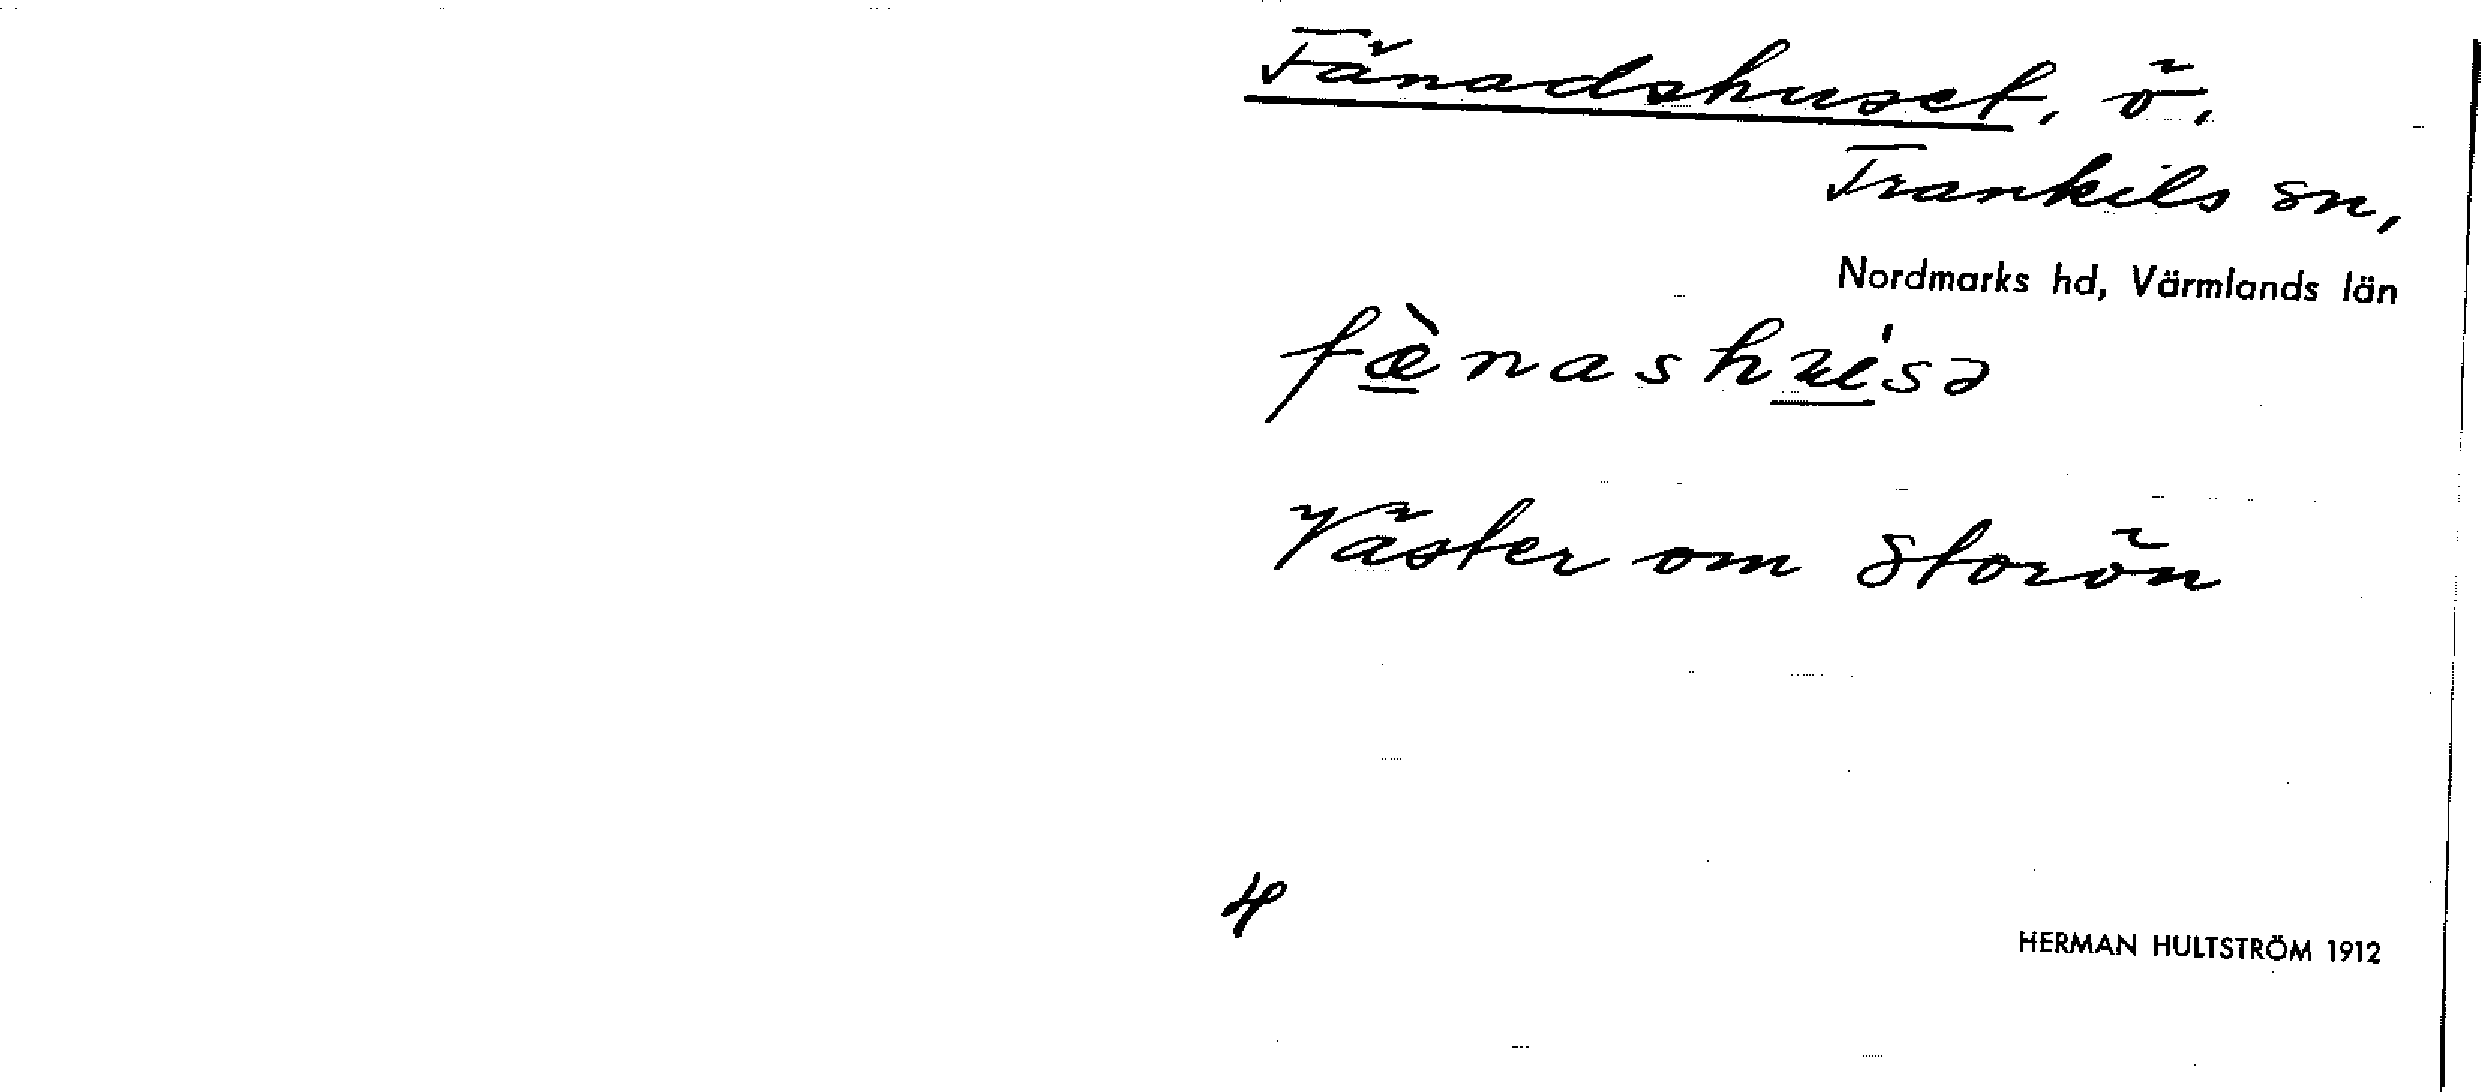 Fänadshuset, ö,
Trankils sn,
Nordmarks hd, Värmlands län
fæ̀nashu̇́sə
Väster om Storön
4
HERMAN HULTSTRÖM 1912